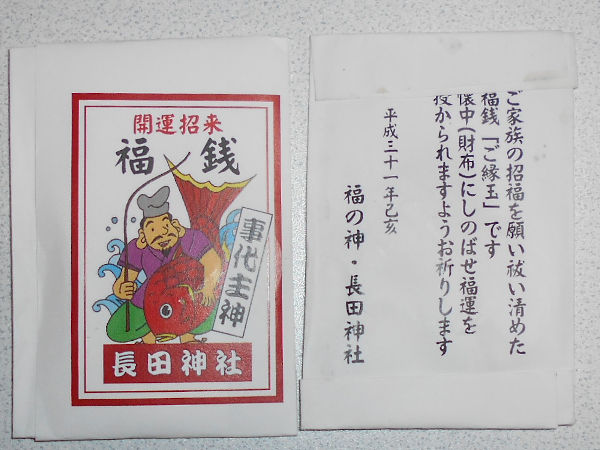 開運招来
福銭
事代主神
長田神社
ご家族の招福を願い祓い清めた
福銭「ご縁玉」です
懐中(財布)にしのばせ福運を
授かられますようお祈りします
平成三十一年乙亥
福の神・長田神社